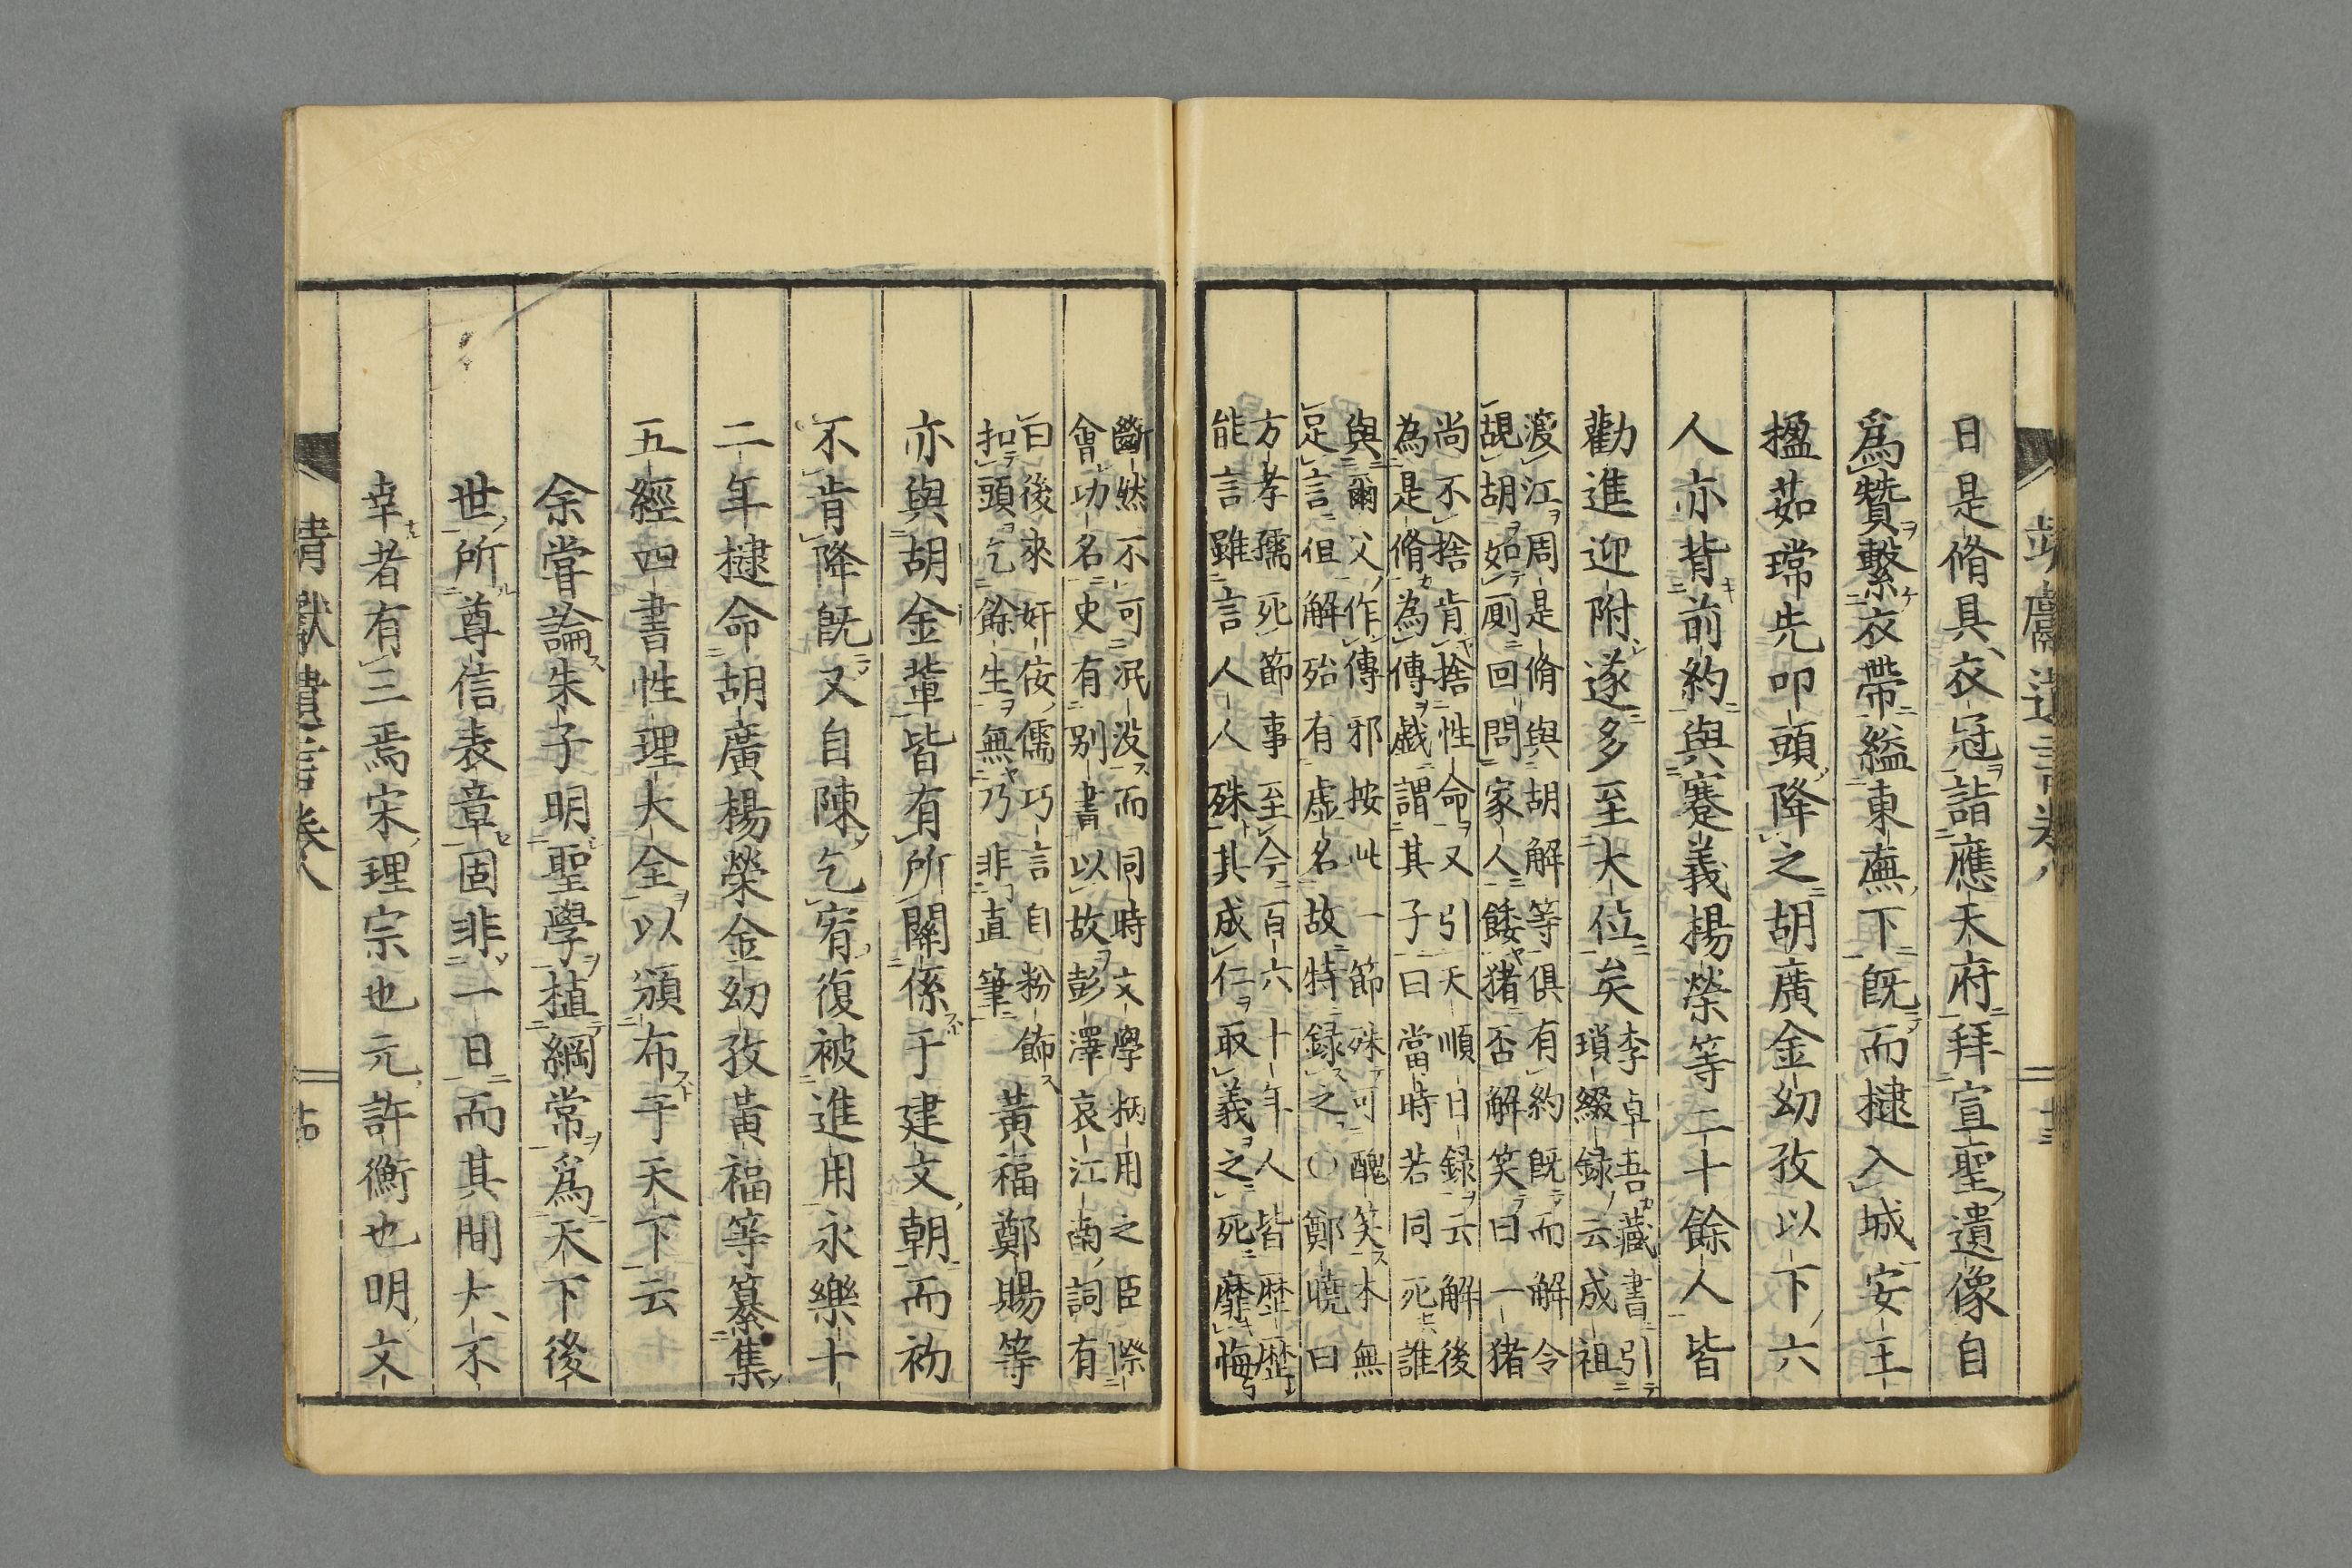 靖獻遺言卷八 十三
日是脩具衣冠詣應天府拜宣聖遺像自
爲贊繫衣帶縊東廡下既而棣入城安王
楹茹瑺先叩頭降之胡廣金幼孜以下六
人亦背前約與蹇義楊榮等二十餘人皆
勸進迎附遂多至大位矣
李卓吾藏書引
瑣綴録云成祖
渡江周是脩與胡解等俱有約既而解令
覘胡如厠回問家人餧猪否解笑曰一猪
尚不捨肯捨性命又引天順日録云解後
為是脩為傳戯謂其子曰當時若同死誰
與爾父作傳邪按此一節殊可醜笑本無
足言但解殆有虚名故特録之○鄭曉曰
方孝孺死節事至今百六十年人皆歴歴
能言雖言人人殊其成仁取義之死靡悔
斷然不可泯没而同時文學柄用之臣際
會功名史有别書以故彭澤哀江南詞有
曰後來奸佞儒巧言自粉飾
扣頭乞餘生無乃非直筆
黄福鄭賜等
亦與胡金輩皆有所關係于建文朝而初
不肯降既又自陳乞宥復被進用永樂十
二年棣命胡廣楊榮金幼孜黄福等纂集
五經四書性理大全以頒布于天下云
余甞論朱子明聖學植綱常爲天下後
世所尊信表章固非一日而其間大不
幸者有三焉宋理宗也元許衡也明文
靖獻遺言卷八 十四